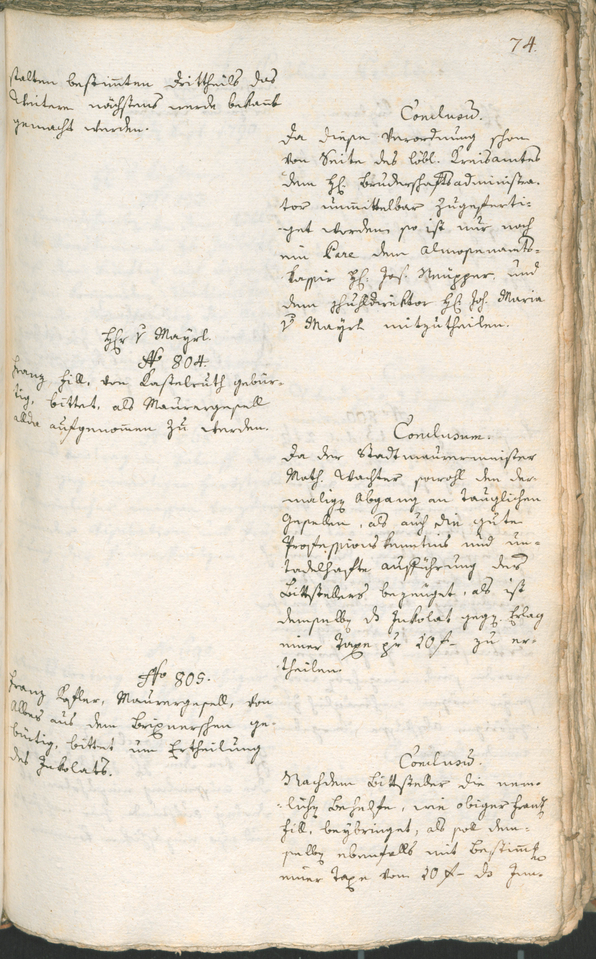 74.
stalten bestimten Drittheils das
Weitere nächstens werde bekannt
gemacht werden.
Conclusum.
Da diese Verordnung schon
von Seite des löbl. Kreisamtes
dem H. Bruderschaftsadministra-
tor unmittelbar zugeferti-
get worden, so ist nur noch
ein Pare dem Almosenamts-
kassir H. Jos. Neupper, und
dem Schuldirektor H. Joh. Maria
v Mayrl mitzutheilen.
Hr v Mayrl.
No 804.
Franz Hill, von Kastelruth gebür-
tig, bittet, als Maurergesell
allda aufgenommen zu werden.
Conclusum.
Da der Stadtmaurermeister
Math. Wachter sowohl den der-
maligen Abgang an tauglichen
Gesellen, als auch die gute
Professionskenntnis und un-
tadelhafte Aufführung des
Bittstellers bezeuget, als ist
demselben das Inkolat gegen Erlag
einer Taxe pr 20 f – zu er-
theilen.
No 805.
Franz Kofler, Maurergesell, von
Albes aus dem Brixnerschen ge-
bürtig, bittet um Ertheilung
des Inkolats.
Conclusum.
Nachdem Bittsteller die nem-
lichen Behelfe, wie obiger Franz
Hill, beybringet, als soll dem-
selben ebenfalls mit Bestimmung
einer Taxe von 20 f – das Inn-